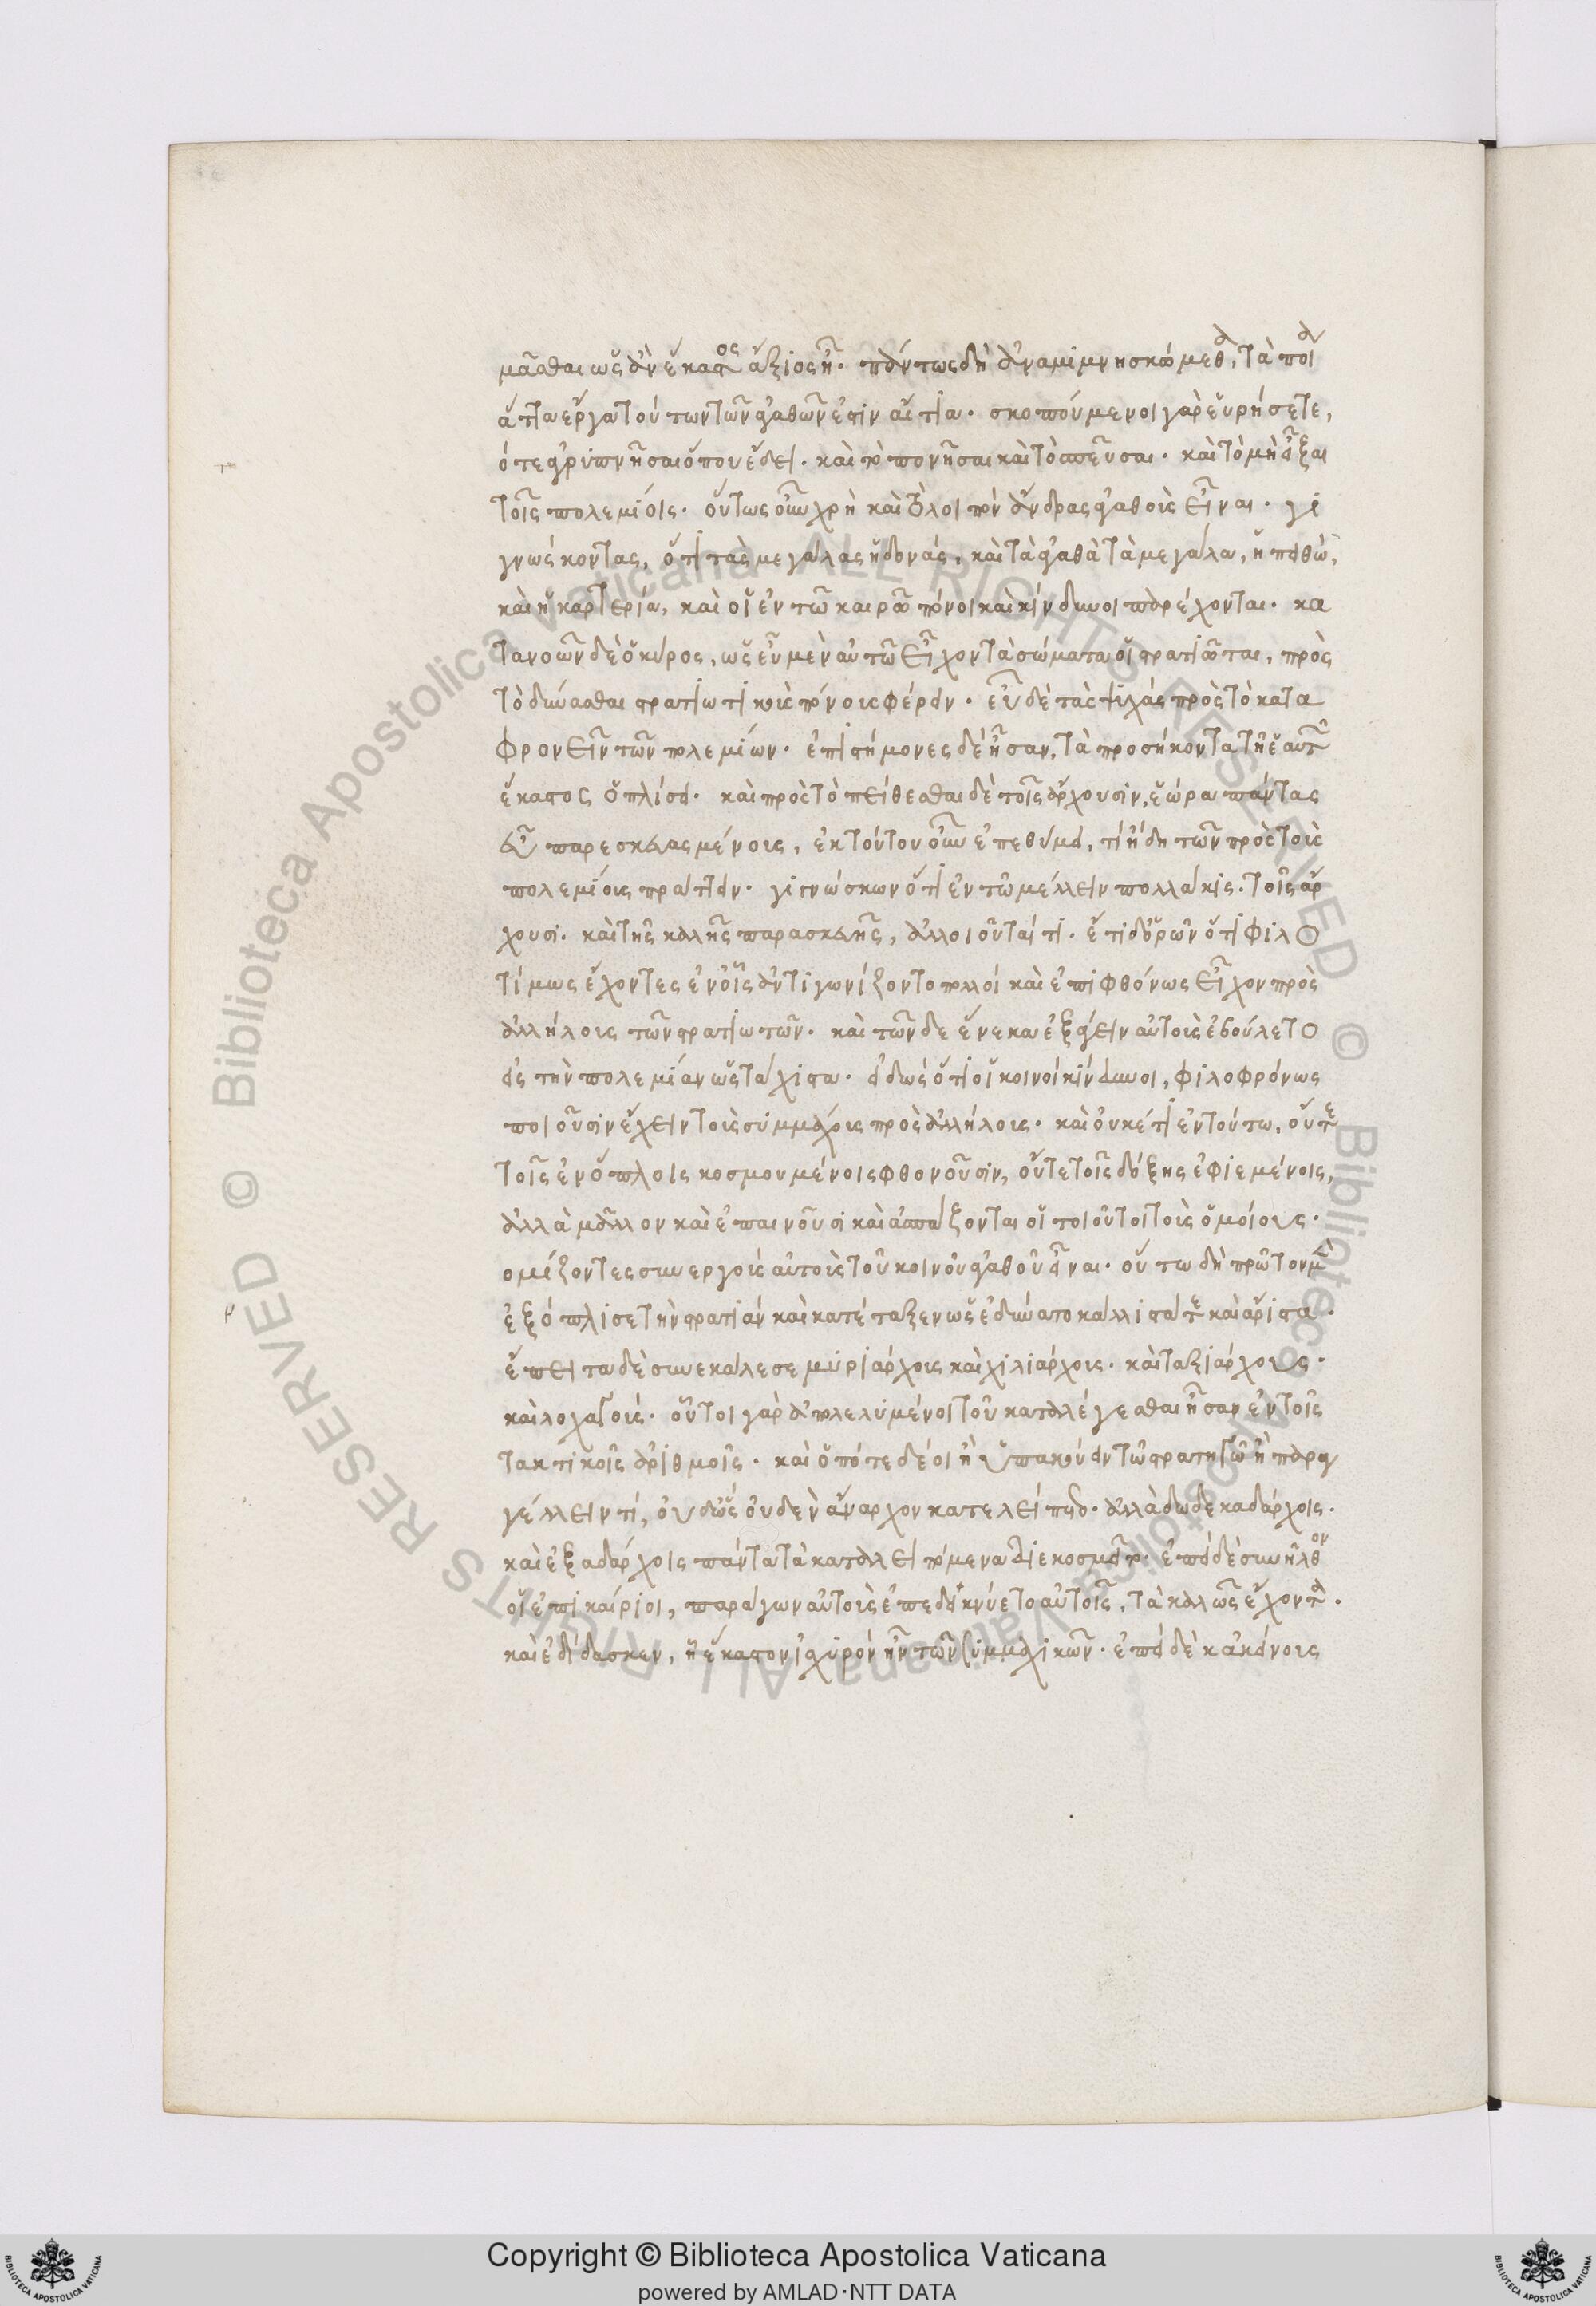 μᾶσθαι ὡς ἂν ἕκαστος ἄξιος ᾖ. πάντως δὴ ἀναμιμνησκώμεθα, τὰ ποῖ
άττα ἔργα τούτων τῶν ἀγαθῶν ἐστὶν αἴτια. σκοπούμενοι γὰρ εὑρήσετε,
ὅτε ἀγρυπνῆσαι ὅπου ἔδει. καὶ τὸ πονῆσαι καὶ τὸ σπεῦσαι. καὶ τὸ μὴ εἶξαι
τοῖς πολεμίοις. οὕτως οὖν χρὴ καὶ τὸ λοιπὸν ἄνδρας ἀγαθοὺς εἶναι. γι
γνώσκοντας, ὅτι τὰς μεγάλας ἡδονάς, καὶ τὰ ἀγαθὰ τὰ μεγάλα, ἡ πειθὼ,
καὶ ἡ καρτερία, καὶ οἱ ἐν τῶ καιρῶ πόνοι καὶ κίνδυνοι παρέχονται. κα
τανοῶν δὲ ὁ κύρος, ὡς εὖ μὲν αὐτῶ εἶχον τὰ σώματα οἱ στρατιῶται, πρὸς
τὸ δύνασθαι στρατιωτικοὺς πόνους φέρειν. εὖ δὲ τὰς ψυχὰς πρὸς τὸ κατα
φρονεῖν τῶν πολεμίων. ἐπιστήμονες δὲ ἦσαν, τὰ προσήκοντα τῇ ἑαυτῶν
ἕκαστος ὁπλίσει. καὶ πρὸς τὸ πείθεσθαι δὲ τοῖς ἄρχουσιν, ἑώρα πάντας
εὖ παρεσκευασμένους, ἐκ τούτου οὖν ἐπεθύμει, τί ἤδη τῶν πρὸς τοὺς
πολεμίους πράττειν. γιγνώσκων ὅτι ἐν τῶ μέλλειν πολλάκις. τοῖς ἄρ
χουσι. καὶ τῆς καλῆς παρασκευῆς, ἀλλοιοῦταί τι. ἔτι δ' ὁρῶν ὅτι φιλο
τίμως ἔχοντες ἐν οἷς ἀντιγωνίζοντο πολλοί καὶ ἐπιφθόνως εἶχον πρὸς
ἀλλήλους τῶν στρατιωτῶν. καὶ τῶνδε ἕνεκα ἐξάγειν αὐτοὺς ἐβούλετο
εἰς τὴν πολεμίαν ὡς τάχιστα. εἰδὼς ὅτι οἱ κοινοὶ κίνδυνοι, φιλοφρόνως
ποιοῦσιν ἔχειν τοὺς συμμάχους πρὸς ἀλλήλους. καὶ οὐκέτι ἐν τούτω, οὔτε
τοῖς ἐν ὅπλοις κοσμουμένοις φθονοῦσιν, οὔτε τοῖς δόξης ἐφιεμένοις,
ἀλλὰ μᾶλλον καὶ ἐπαινοῦσι καὶ ἀσπάζονται οἱ τοιοῦτοι τοὺς ὁμοίους.
ομίζοντες συνεργοὺς αὐτοὺς τοῦ κοινοῦ ἀγαθοῦ εἶναι. οὕτω δὴ πρῶτον μὲν
ἐξόπλισε τὴν στρατιάν καὶ κατέταξεν ὡς ἐδύνατο κάλλιστά τε καὶ ἄριστα.
ἔπειτα δὲ συνεκάλεσε μυριάρχους καὶ χιλιάρχους. καὶ ταξιάρχους.
καὶ λοχαγούς. οὗτοι γὰρ ἀπολελυμένοι τοῦ καταλέγεσθαι ἦσαν ἐν τοῖς
τακτικοῖς ἀριθμοῖς. καὶ ὁπότε δέοι ἢ ὑπακούειν τῶ στρατηγῶ ἢ παραγ
γέλλειν τί, οὐδ' ὣς οὐδὲν ἄναρχον κατελείπετο. ἀλλὰ δωδεκαδάρχοις.
καὶ ἐξαδάρχοις πάντα τὰ καταλειπόμενα διεκοσμεῖτο. ἐπεὶ δὲ συνῆλθον
οἱ ἐπικαίριοι, παράγων αὐτοὺς ἐπεδείκνύετο αὐτοῖς, τὰ καλῶς ἔχοντα.
καὶ ἐδίδασκεν, ᾗ ἕκαστον ἰσχυρόν ἦν τῶν συμμαχικῶν. ἐπεὶ δὲ κἀκείνους
Copyright © Biblioteca Apostolica Vaticana
powered by AMLAD·NTT DATA